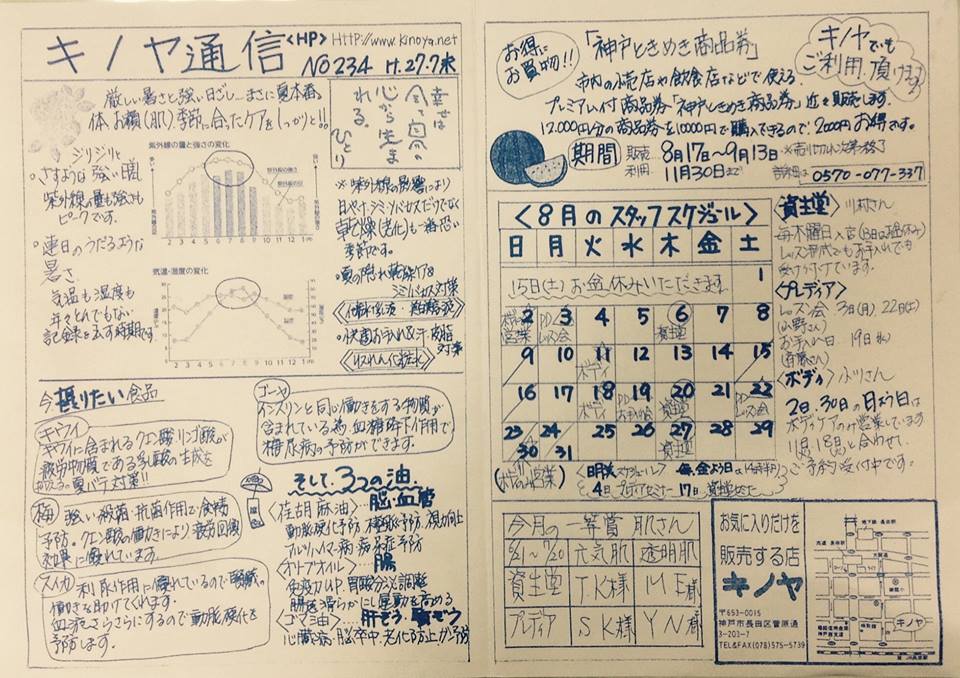 キノヤ通信
<HP> HTTP://www.kinoya.net
NO234 H.27.7末
厳しい暑さと強い日ざし…まさに夏本番。
体、お顔(肌)、季節に合ったケアをしっかりと!!
幸せは
心から生ま
れる。
ひとり
ジリジリと
さすような強い陽
紫外線の量も強さも
ピークです。
連日のうだるような
暑さ
気温も湿度も
年々とんでもない
記録を云す時期です。
紫外線の量と強さの変化
強い
弱い
紫外線量
紫外線の強さ
2 3 4 5 6 7 8 9 10 11 12 1 (月)
気温・湿度の変化
1 2 3 4 5 6 7 8 9 10 11 12 (月)
※紫外線の影響により
日ヤケ、シミ、ソバカスだけでなく
乾燥(老化)も一番恐い
季節です。
・夏の隠れ乾燥ケア&
シミ、ソバカス対策
・快適お手入れ&汗・皮脂
対策
《収れん化粧水》
今摂りたい食品
キウイ
キウイに含まれるクエン酸、リンゴ酸が
疲労物質である乳酸の生成を
抑える。夏バテ対策!!
ゴーヤ
インスリンと同じ働きをする物質が
含まれている為、血糖降下作用で
糖尿病の予防ができます。
梅
強い殺菌・抗菌作用で食物
予防。クエン酸の働きにより疲労回復
効果に優れています。
スイカ
利尿作用に優れているので腎臓の
働きを助けてくれます。
血流をさらさらにするので動脈硬化を
予防します。
そして、3つの油
<荏胡麻油>…脳・血管
動脈硬化予防 視力向上
アルツハイマー病
<オリーブオイル>…腸
免疫力UP. 胃酸分泌を調整
腸を滑らかにし運動を高める
<ゴマ油>…肝ぞう
心臓病・脳卒中・老化防止
お得に
お買物!!
「神戸ときめき商品券」
キノヤでも
ご利用頂けます
市内の小売店や飲食店などで使える
プレミアム付商品券「神戸ときめき商品券」近々販売します。
12,000円分の商品券を10000円で購入できるので、2000円お得です。
期間
販売…8月17日~9月13日 ※売り切れ次第終了
利用…11月30日まで
0570-077-337
<8月のスタッフスケジュール>
日 月 火 水 木 金 土
15日(土)お盆休みいただきます。 1
2 3 4 5 6 7 8
営業 PD レッスン会 資生堂
9 10 11 12 13 14 15
ボディ
16 17 18 19 20 21 22
ボディ PD お手入れ会 資生堂 PD レッスン会
23 24 25 26 27 28 29
資生堂
30 31
<資生堂>川村さん
毎木曜日入店(13日は盆休み)
レッスン形式でもお手入れでも
受け付けています。
<プレディア>
レッスン会 3日(月)、22日(土)
お手入れ日 19日(水)
<ボディ>
2日、30日の日よう日は
ボディケアのみ営業しています
11日、18日と合わせて、
ご予約受付中です。
4日 プレディアセミナー 17日 資生堂セミナー
今月の一等賞 肌さん
6/21~7/20 元気肌 透明肌
資生堂 T.K様 M.E様
プレディア S.K様 Y.N様
お気に入りだけを
販売する店
キノヤ
〒653-0015
神戸市長田区菅原通
3-203-7
TEL&FAX(078)575-5739
キノヤ